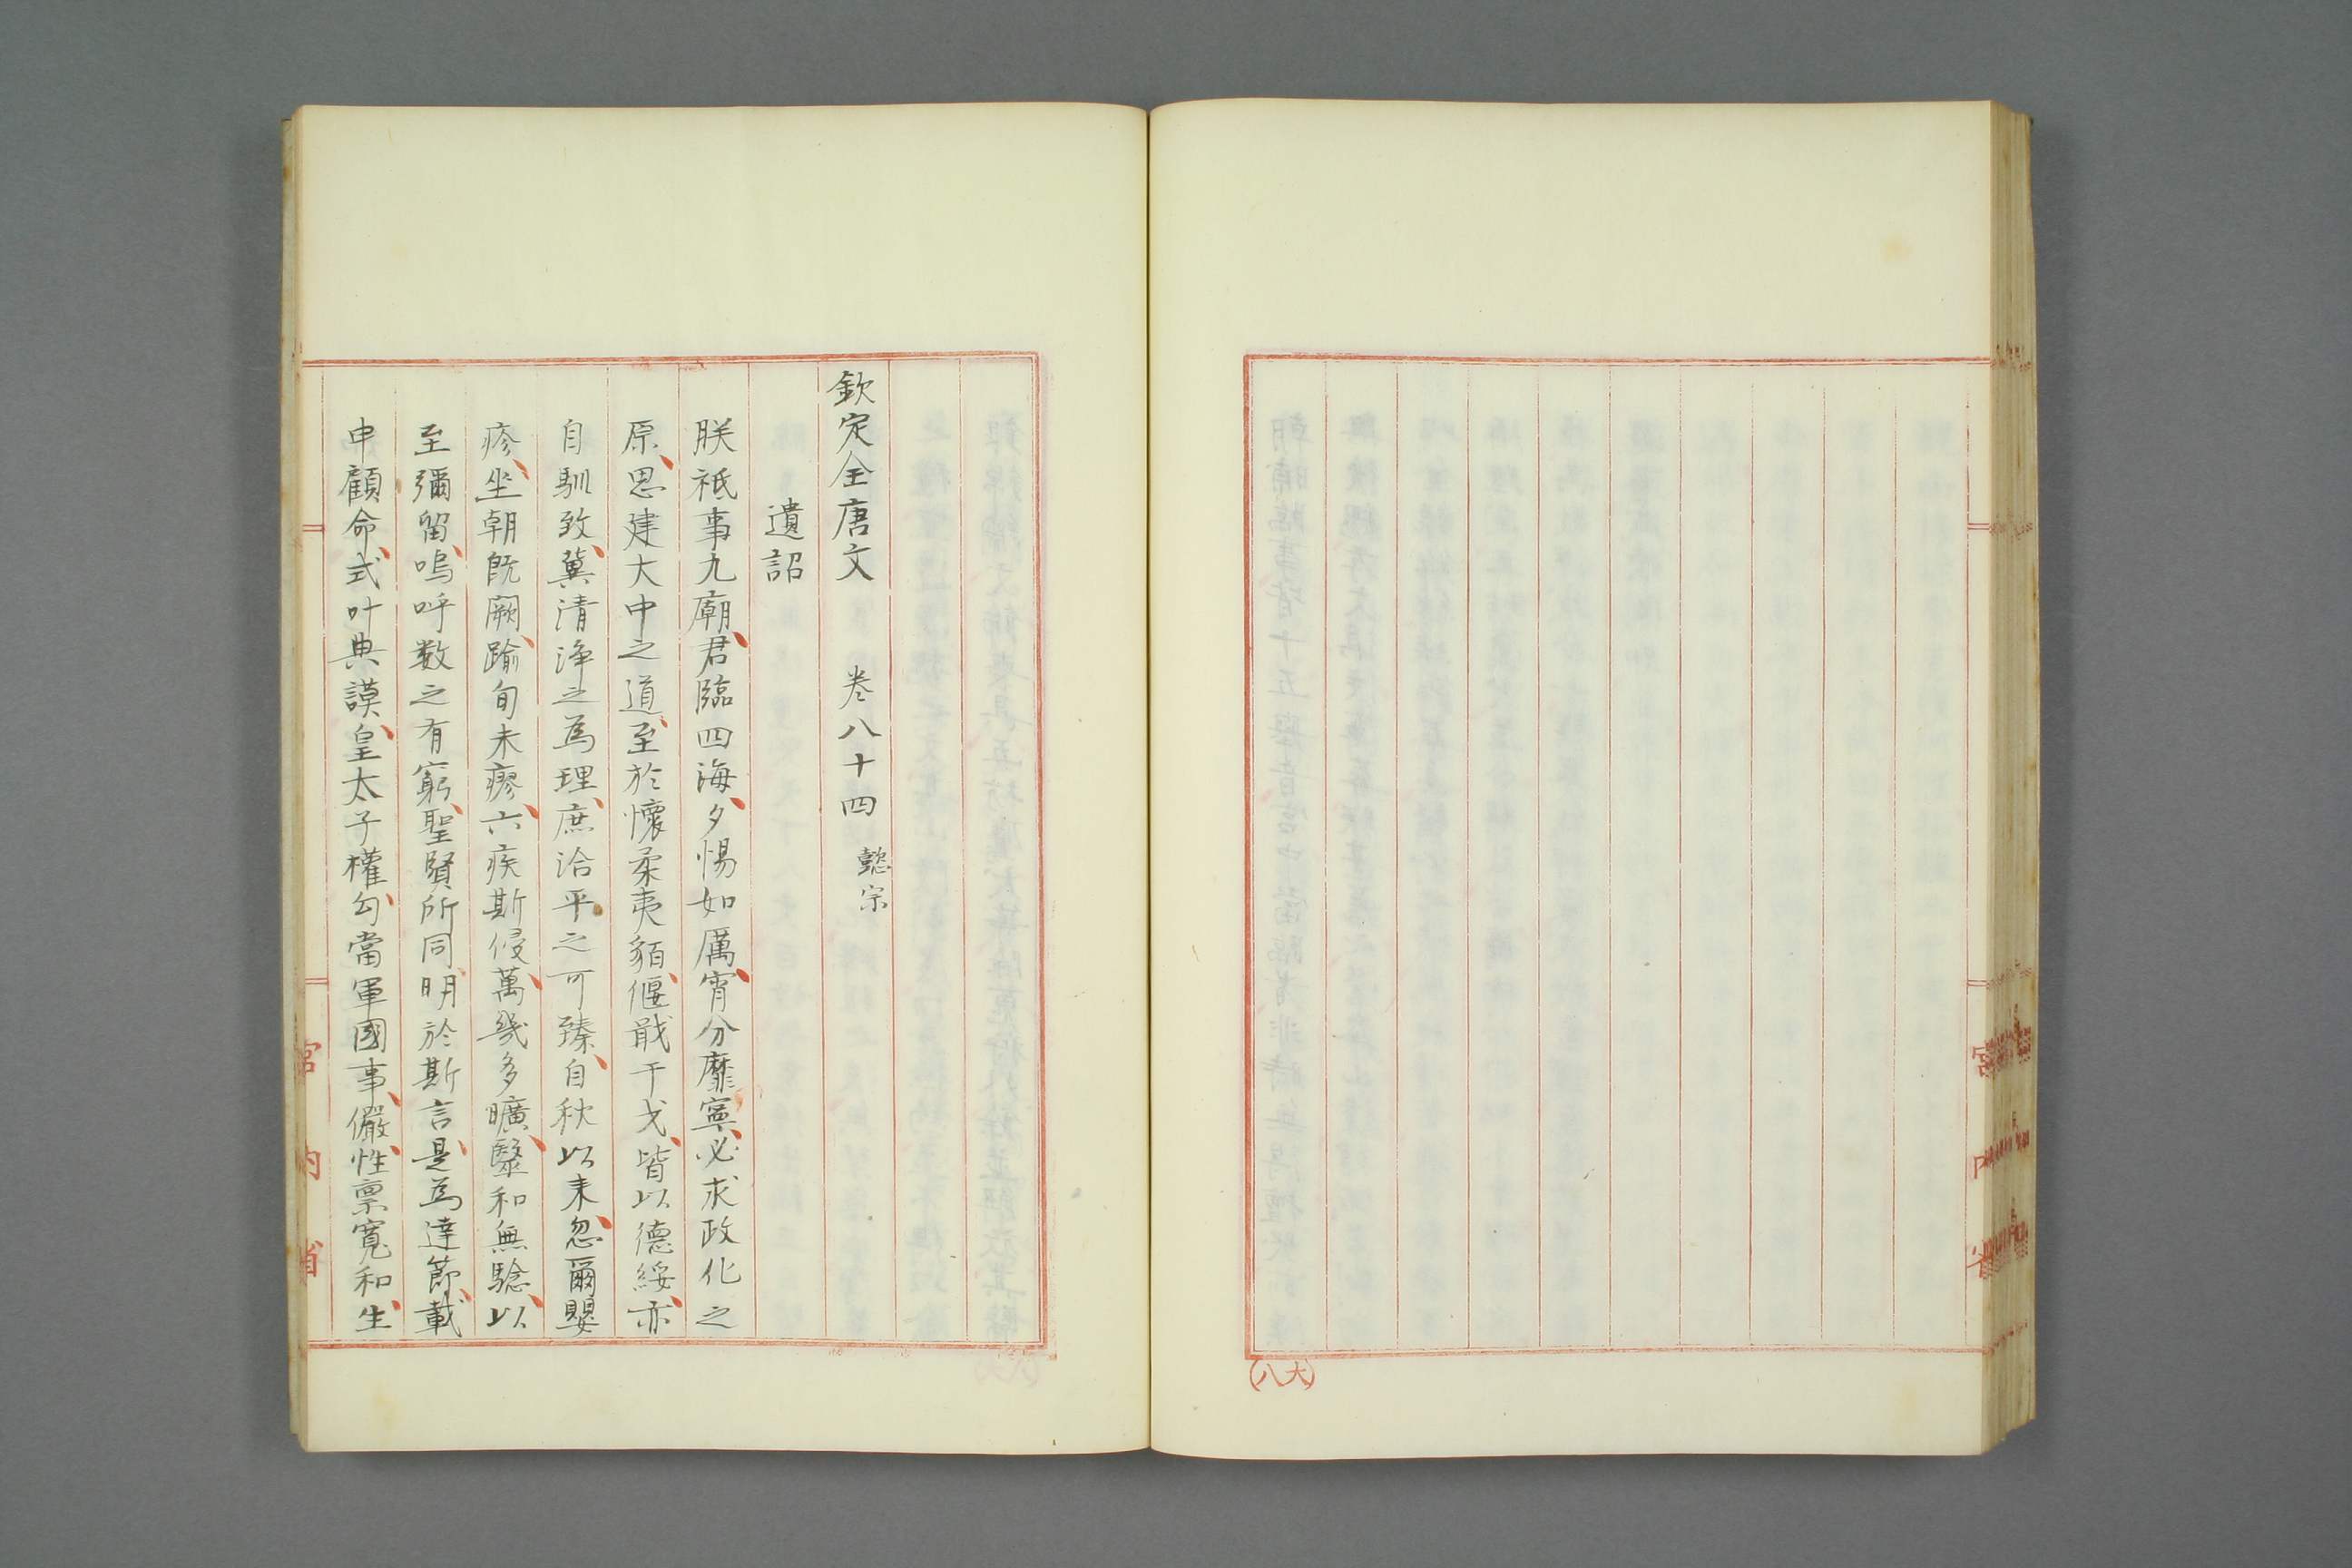 (大八)
宮内省
欽定全唐文 卷八十四 懿宗
遺詔
朕祗事九廟、君臨四海、夕惕如厲、宵分靡寧、必求政化之
原、思建大中之道、至於懷柔夷貊、偃戢干戈、皆以德綏、亦
自馴致、冀清淨之為理、庶洽平之可臻、自秋以来、忽爾嬰
疹、坐朝既闕、踰旬未瘳、六疾斯侵、萬幾多曠、醫和無騐、以
至彌留、嗚呼数之有窮、聖賢所同、明於斯言、是為達節、載
申顧命、式叶典謨、皇太子權勾、當軍國事、儼、性禀寬和、生
宮内省